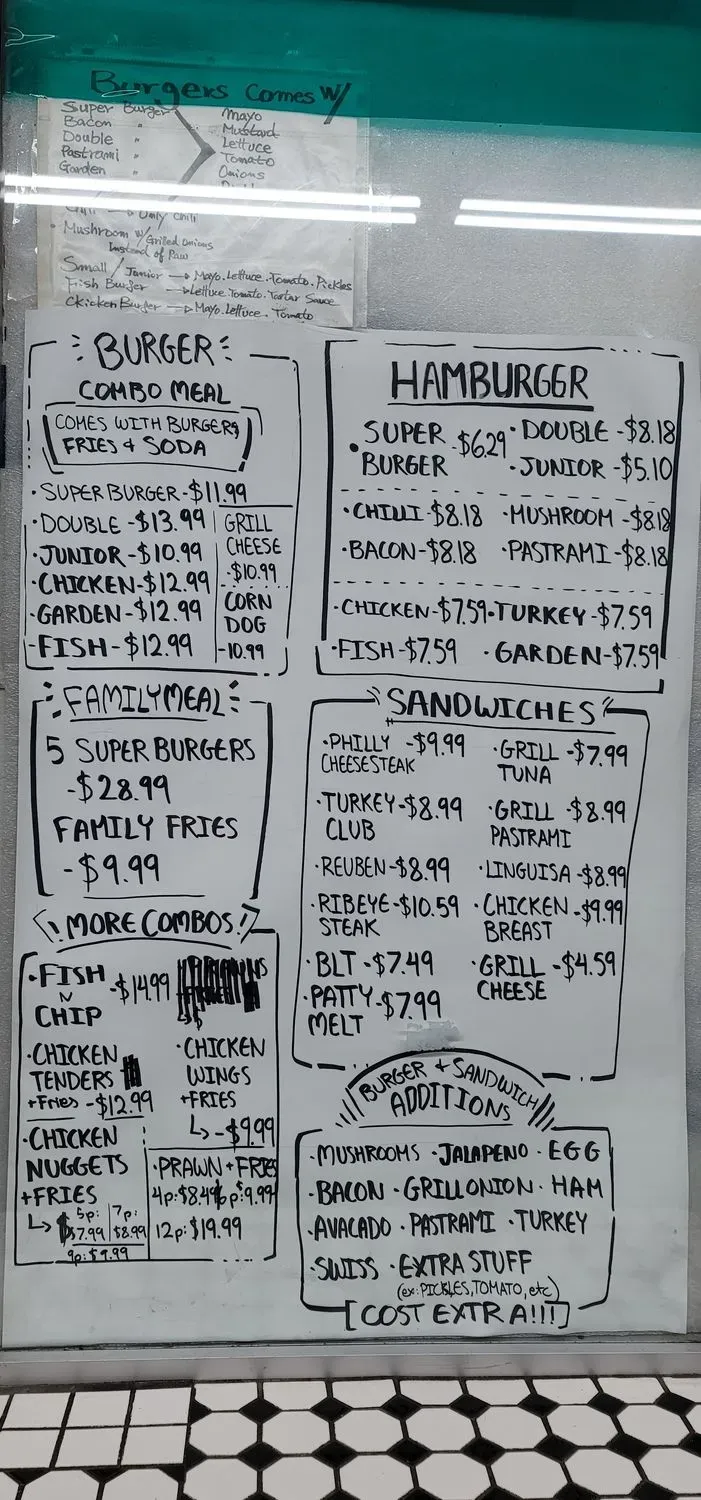 Burgers Comes W/
Super Burger Mayo
Bacon " Mustard
Double " Lettuce
Pastrami " Tomato
Garden " Onions
Only Chili
• Mushroom w/ Grilled Onions
Instead of Raw
Small / Junior → Mayo. Lettuce. Tomato. Pickles
Fish Burger → Lettuce. Tomato. Tartar Sauce
Chicken Burger → Mayo. Lettuce. Tomato
BURGER
COMBO MEAL
COMES WITH BURGERS
FRIES & SODA
• SUPER BURGER - $11.99
• DOUBLE - $13.99
• JUNIOR - $10.99
• CHICKEN - $12.99
• GARDEN - $12.99
• FISH - $12.99
GRILL
CHEESE
- $10.99
CORN
DOG
- 10.99
HAMBURGGR
• SUPER BURGER - $6.29
• DOUBLE - $8.18
• JUNIOR - $5.10
• CHILLI - $8.18 • MUSHROOM - $8.18
• BACON - $8.18 • PASTRAMI - $8.18
• CHICKEN - $7.59 • TURKEY - $7.59
• FISH - $7.59 • GARDEN - $7.59
FAMILY MEAL
5 SUPER BURGERS
- $28.99
FAMILY FRIES
- $9.99
SANDWICHES
• PHILLY - $9.99
CHEESESTEAK
• GRILL - $7.99
TUNA
• TURKEY - $8.99
CLUB
• GRILL - $8.99
PASTRAMI
• REUBEN - $8.99 • LINGUISA - $8.99
• RIBEYE - $10.59
STEAK
• CHICKEN - $9.99
BREAST
• BLT - $7.49
• GRILL - $4.59
CHEESE
• PATTY - $7.99
MELT
! MORE COMBOS !
• FISH - $14.99
N
CHIP
• CHICKEN
TENDERS
+Fries - $12.99
• CHICKEN
WINGS
+FRIES
↳ - $9.99
• CHICKEN
NUGGETS
+FRIES
↳ 5p: $7.99 7p: $8.99
9p: $9.99
• PRAWN + FRIES
4p: $8.49 6p: $9.99
12p: $19.99
BURGER + SANDWICH
ADDITIONS
• MUSHROOMS • JALAPENO • EGG
• BACON • GRILL ONION • HAM
• AVACADO • PASTRAMI • TURKEY
• SWISS • EXTRA STUFF
(ex: PICKLES, TOMATO, etc)
[COST EXTRA!!!]